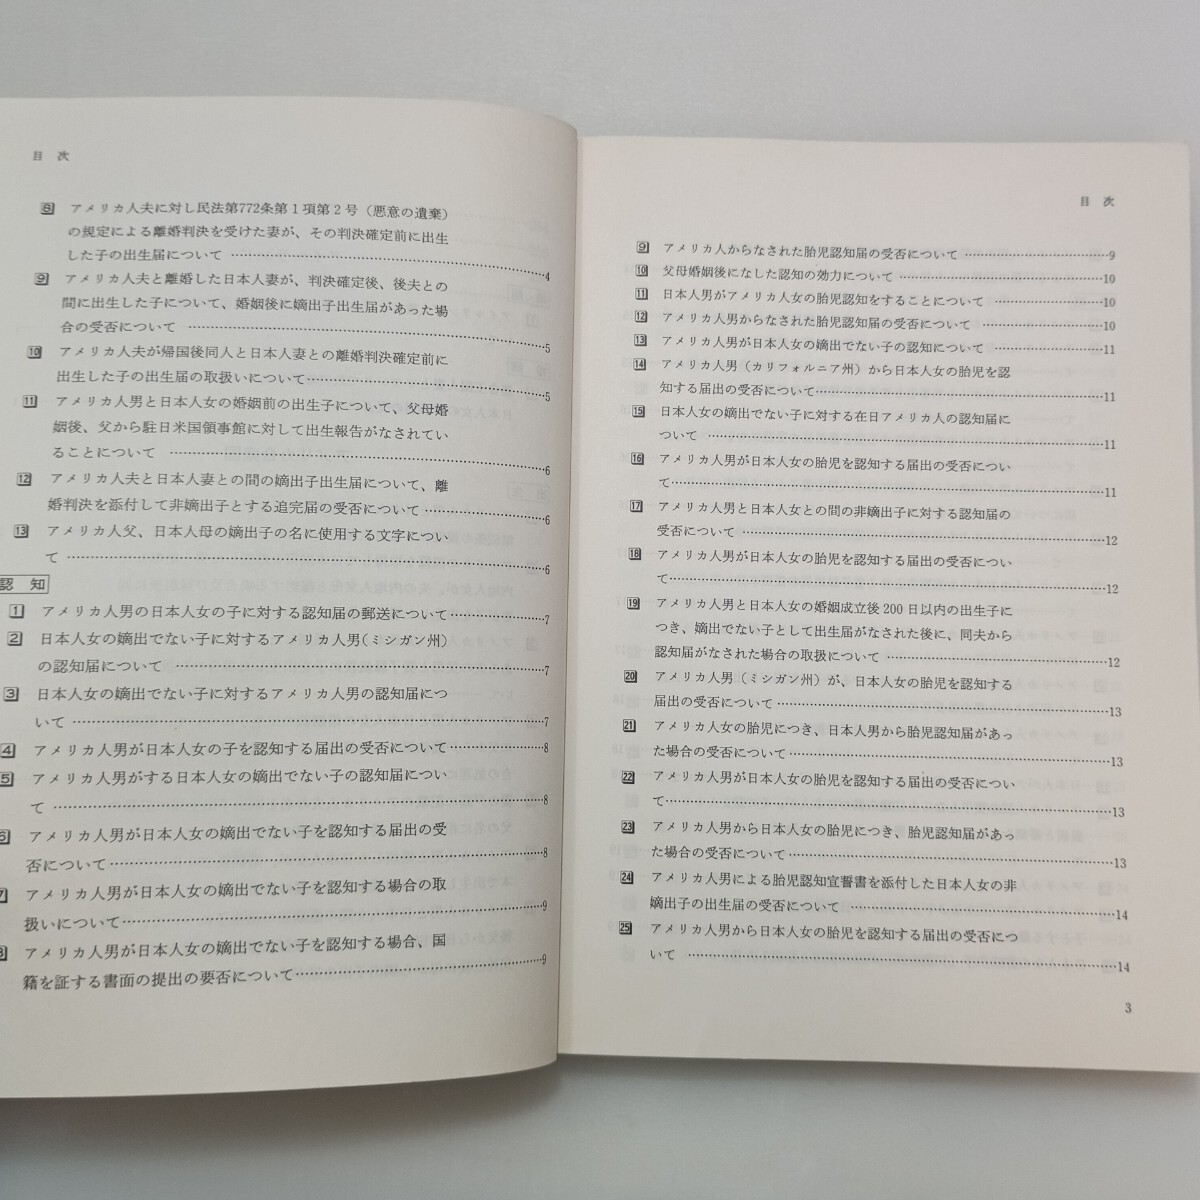 目 次
アメリカ人夫に対し民法第772条第1項第2号（悪意の遺棄）
の規定による離婚判決を受けた妻が、その判決確定前に出生
した子の出生届について ……………4
9 アメリカ人夫と離婚した日本人妻が、判決確定後、後夫との
間に出生した子について、婚姻後に嫡出子出生届があった場
合の受否について ……………5
10 アメリカ人夫が帰国後同人と日本人妻との離婚判決確定前に
出生した子の出生届の取扱いについて……………5
11 アメリカ人男と日本人女の婚姻前の出生子について、父母婚
姻後、父から駐日米国領事館に対して出生報告がなされてい
ることについて ……………6
12 アメリカ人夫と日本人妻との間の嫡出子出生届について、離
婚判決を添付して非嫡出子とする追完届の受否について……………6
13 アメリカ人父、日本人母の嫡出子の名に使用する文字につい
て ……………6
認 知
1 アメリカ人男の日本人女の子に対する認知届の郵送について……………7
2 日本人女の嫡出でない子に対するアメリカ人男（ミシガン州）
の認知届について ……………7
3 日本人女の嫡出でない子に対するアメリカ人男の認知届につ
いて ……………7
4 アメリカ人男が日本人女の子を認知する届出の受否について……………8
5 アメリカ人男がする日本人女の嫡出でない子の認知届につい
て ……………8
6 アメリカ人男が日本人女の嫡出でない子を認知する届出の受
否について……………8
7 アメリカ人男が日本人女の嫡出でない子を認知する場合の取
扱いについて……………9
8 アメリカ人男が日本人女の嫡出でない子を認知する場合、国
籍を証する書面の提出の要否について……………9
目 次
9 アメリカ人からなされた胎児認知届の受否について ……………9
10 父母婚姻後になした認知の効力について ……………10
11 日本人男がアメリカ人女の胎児認知をすることについて ……………10
12 アメリカ人男からなされた胎児認知届の受否について ……………10
13 アメリカ人男が日本人女の嫡出でない子の認知について ……………11
14 アメリカ人男（カリフォルニア州）から日本人女の胎児を認
知する届出の受否について……………11
15 日本人女の嫡出でない子に対する在日アメリカ人の認知届に
ついて ……………11
16 アメリカ人男が日本人女の胎児を認知する届出の受否につい
て……………11
17 アメリカ人男と日本人女との間の非嫡出子に対する認知届の
受否について……………12
18 アメリカ人男が日本人女の胎児を認知する届出の受否につい
て……………12
19 アメリカ人男と日本人女の婚姻成立後200日以内の出生子に
つき、嫡出でない子として出生届がなされた後に、同夫から
認知届がなされた場合の取扱について ……………12
20 アメリカ人男（ミシガン州）が、日本人女の胎児を認知する
届出の受否について……………13
21 アメリカ人女の胎児につき、日本人男から胎児認知届があっ
た場合の受否について……………13
22 アメリカ人男が日本人女の胎児を認知する届出の受否につい
て……………13
23 アメリカ人男から日本人女の胎児につき、胎児認知届があっ
た場合の受否について……………13
24 アメリカ人男による胎児認知宣誓書を添付した日本人女の非
嫡出子の出生届の受否について ……………14
25 アメリカ人男から日本人女の胎児を認知する届出の受否につ
いて ……………14
3